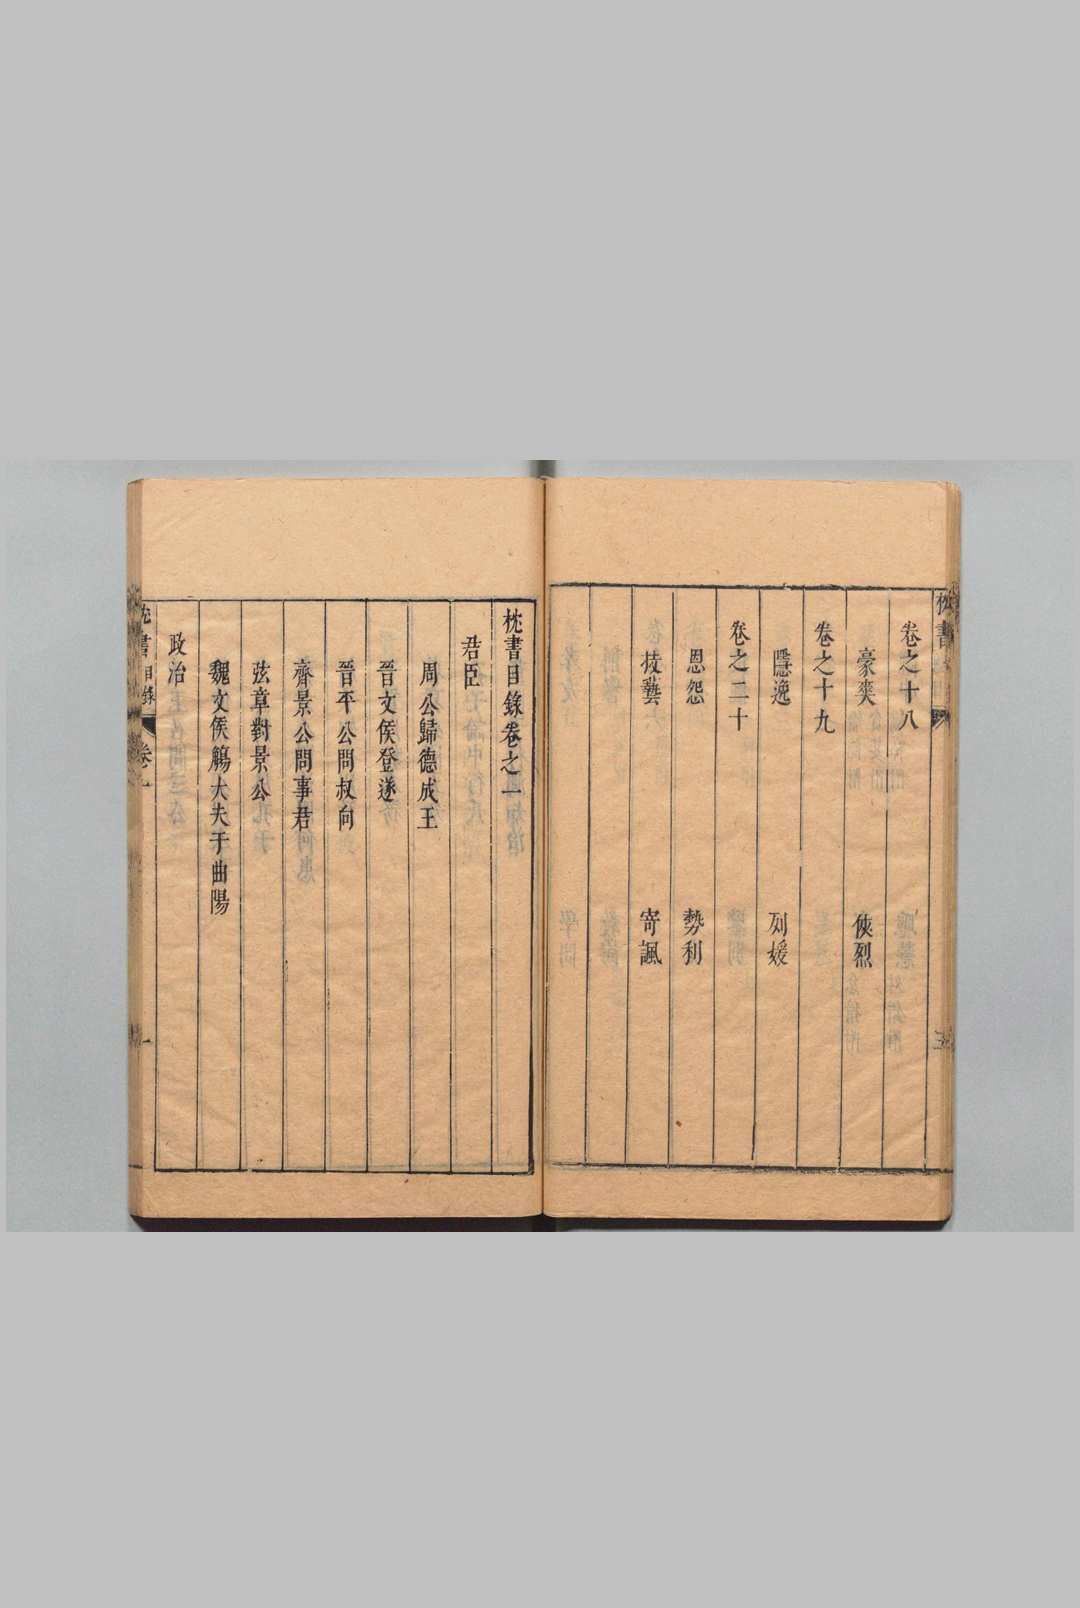 卷之十八
豪爽 俠烈
卷之十九
隱逸 列媛
卷之二十
恩怨 勢利
技藝 寄諷
枕書目錄卷之一
君臣
周公歸德成王
晉文侯登遂
晉平公問叔向
齊景公問事君
弦章對景公
魏文侯觴大夫于曲陽
政治
枕書 目錄 卷一